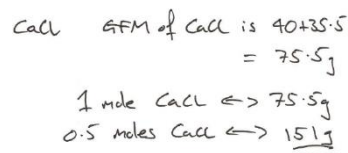 CaCl GFM of CaCl is 40+35.5
= 75.5g
1 mole CaCl <=> 75.5g
0.5 moles CaCl <=> 151g